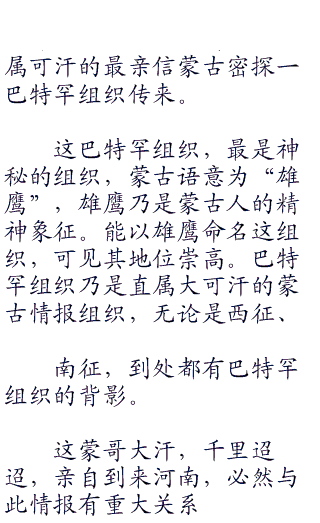 属可汗的最亲信蒙古密探一
巴特罕组织传来。
这巴特罕组织，最是神
秘的组织，蒙古语意为“雄
鹰”，雄鹰乃是蒙古人的精
神象征。能以雄鹰命名这组
织，可见其地位崇高。巴特
罕组织乃是直属大可汗的蒙
古情报组织，无论是西征、
南征，到处都有巴特罕
组织的背影。
这蒙哥大汗，千里迢
迢，亲自到来河南，必然与
此情报有重大关系